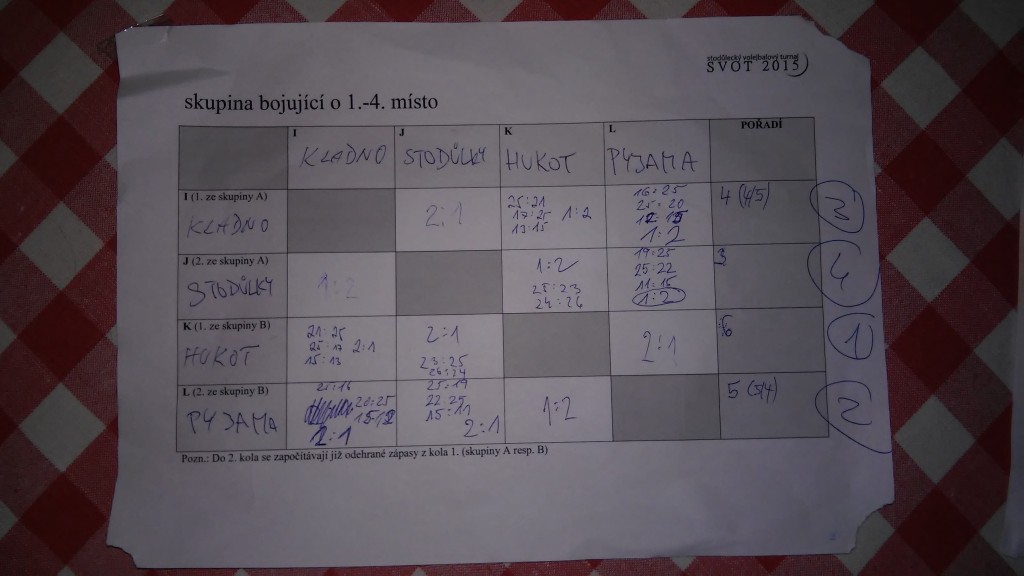 stodůlecký volejbalový turnaj
SVOT 2015
skupina bojující o 1.-4. místo
I J K L POŘADÍ
KLADNO STODŮLKY HUKOT PYJAMA
I (1. ze skupiny A)
KLADNO
2:1
25:21
17:25 1:2
13:15
16:25
25:20
1:2
4 (4/5)
3
J (2. ze skupiny A)
STODŮLKY
1:2
1:2
25:23
24:26
19:25
25:22
1:2
3
4
K (1. ze skupiny B)
HUKOT
21:25
25:17 2:1
15:13
2:1
23:25
2:1
6
1
L (2. ze skupiny B)
PYJAMA
25:16
20:25
2:1
25:19
22:25
15:11
2:1
1:2
5 (5/4)
2
Pozn.: Do 2. kola se započítávají již odehrané zápasy z kola 1. (skupiny A resp. B)